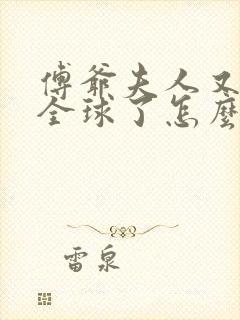 傅爺夫人又
全球了怎麼
雷泉